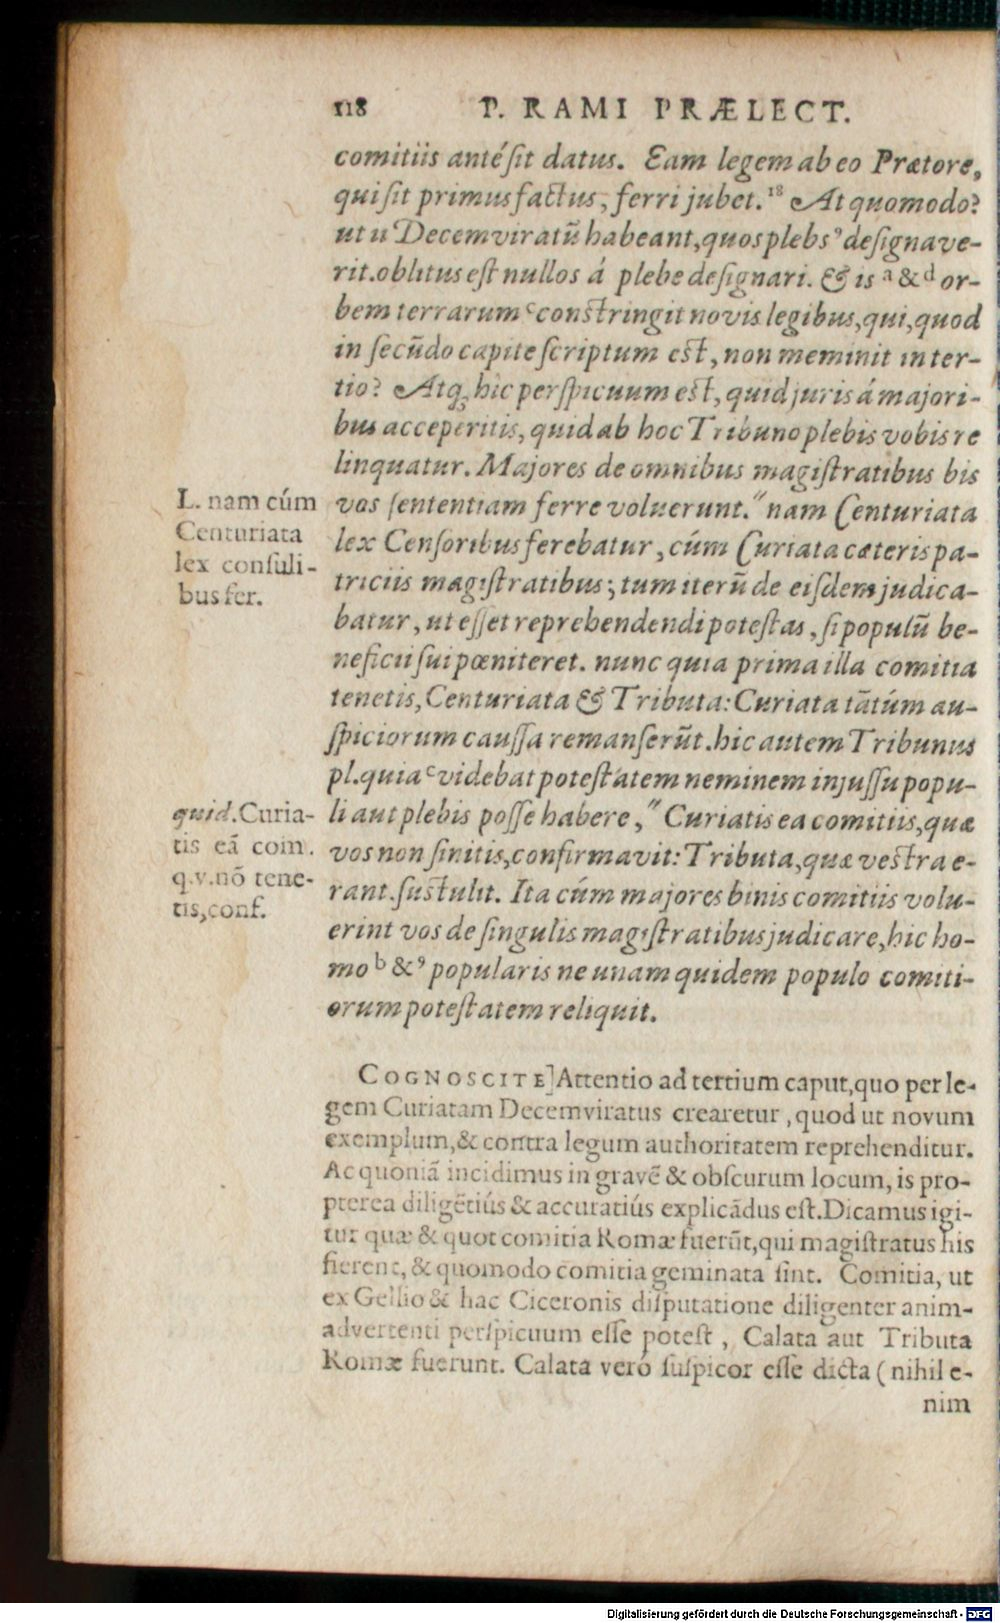 118 P. RAMI PRÆLECT.
comitiis antè ſit datus. Eam legem ab eo Prætore,
qui ſit primus factus, ferri jubet.¹⁸ At quomodo?
ut ii Decemviratū habeant, quos plebs⁹ deſignave-
rit. oblitus eſt nullos á plebe deſignari. & is ᵃ & ᵈ or-
bem terrarum ᶜ conſtringit novis legibus, qui, quod
in ſecūdo capite ſcriptum eſt, non meminit in ter-
tio? Atq; hic perſpicuum eſt, quid juris á majori-
bus acceperitis, quid ab hoc Tribuno plebis vobis re
linquatur. Majores de omnibus magiſtratibus bis
vos ſententiam ferre voluerunt.″ nam Centuriata
lex Cenſoribus ferebatur, cúm Curiata cæteris pa-
triciis magiſtratibus; tum iterū de eiſdem judica-
batur, ut eſſet reprehendendi poteſtas, ſi populū be-
neficii ſui pœniteret. nunc quia prima illa comitia
tenetis, Centuriata & Tributa: Curiata tātúm au-
ſpiciorum cauſſa remanſerūt. hic autem Tribunus
pl. quia ᶜ videbat poteſtatem neminem injuſſu popu-
li aut plebis poſſe habere,″ Curiatis ea comitiis, quæ
vos non ſinitis, confirmavit: Tributa, quæ veſtra e-
rant. ſuſtulit. Ita cúm majores binis comitiis volu-
erint vos de ſingulis magiſtratibus judicare, hic ho-
mo ᵇ &⁹ popularis ne unam quidem populo comiti-
orum poteſtatem reliquit.
L. nam cúm
Centuriata
lex conſuli-
bus fer.
quid. Curia-
tis eā com.
q.v.nō tene-
tis, conf.
COGNOSCITE] Attentio ad tertium caput, quo per le-
gem Curiatam Decemviratus crearetur, quod ut novum
exemplum, & contra legum authoritatem reprehenditur.
Ac quoniā incidimus in gravē & obſcurum locum, is pro-
pterea diligētiús & accuratiús explicādus eſt. Dicamus igi-
tur quæ & quot comitia Romæ fuerūt, qui magiſtratus his
fierent, & quomodo comitia geminata ſint. Comitia, ut
ex Gellio & hac Ciceronis diſputatione diligenter anim-
advertenti perſpicuum eſſe poteſt, Calata aut Tributa
Romæ fuerunt. Calata veró ſuſpicor eſſe dicta (nihil e-
nim
Digitalisierung gefördert durch die Deutsche Forschungsgemeinschaft - DFG